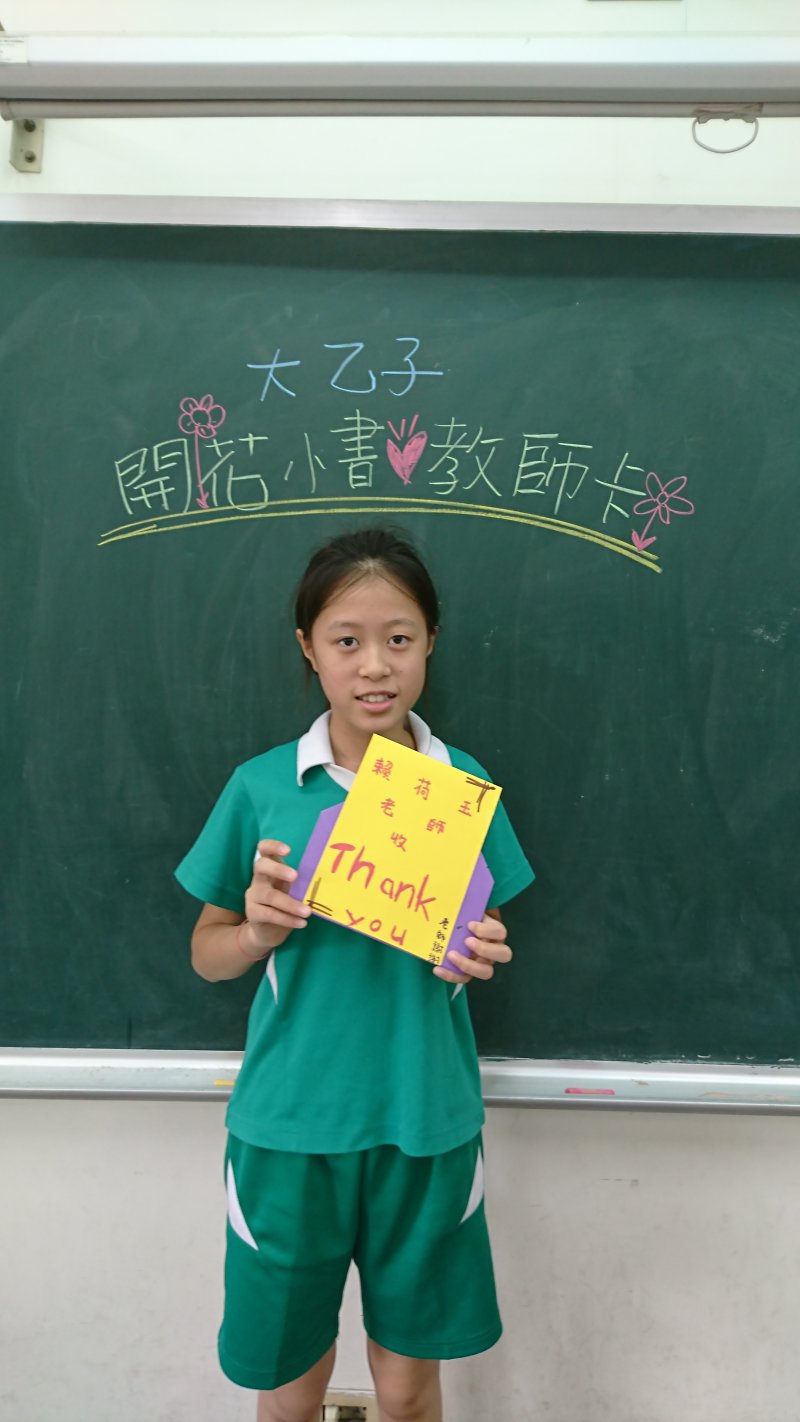 大乙子
開花小書教師卡
賴荷玉
老師
收
Thank
you
老師謝謝